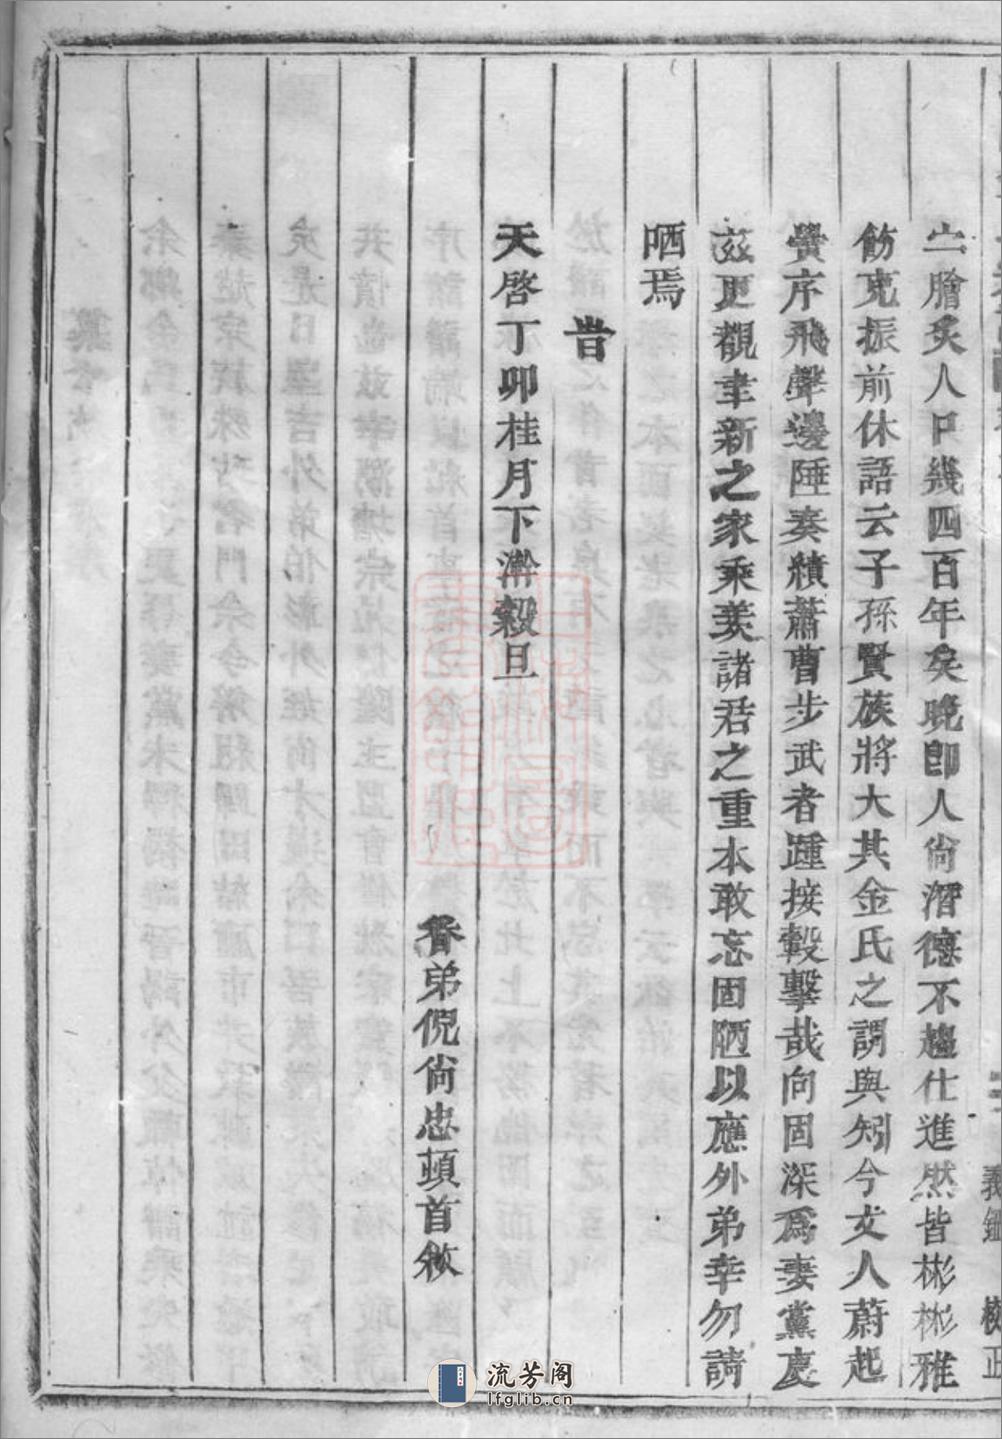 義鈿 校正
二膾炙人口幾四百年矣晩卽人尙潛德不趨仕進然皆彬彬雅
飭克振前休語云子孫賢族將大其金氏之謂與矧今文人蔚起
黌序飛聲邊陲奏績蕭曹步武者踵接轂擊哉向固深爲妻黨慶
玆更覩聿新之家乘羙諸君之重本敢忘固陋以應外弟幸勿請
哂焉
旹
天啓丁卯桂月下澣穀旦
眷弟倪尙忠頓首敘
流芳阁
lfglib.cn